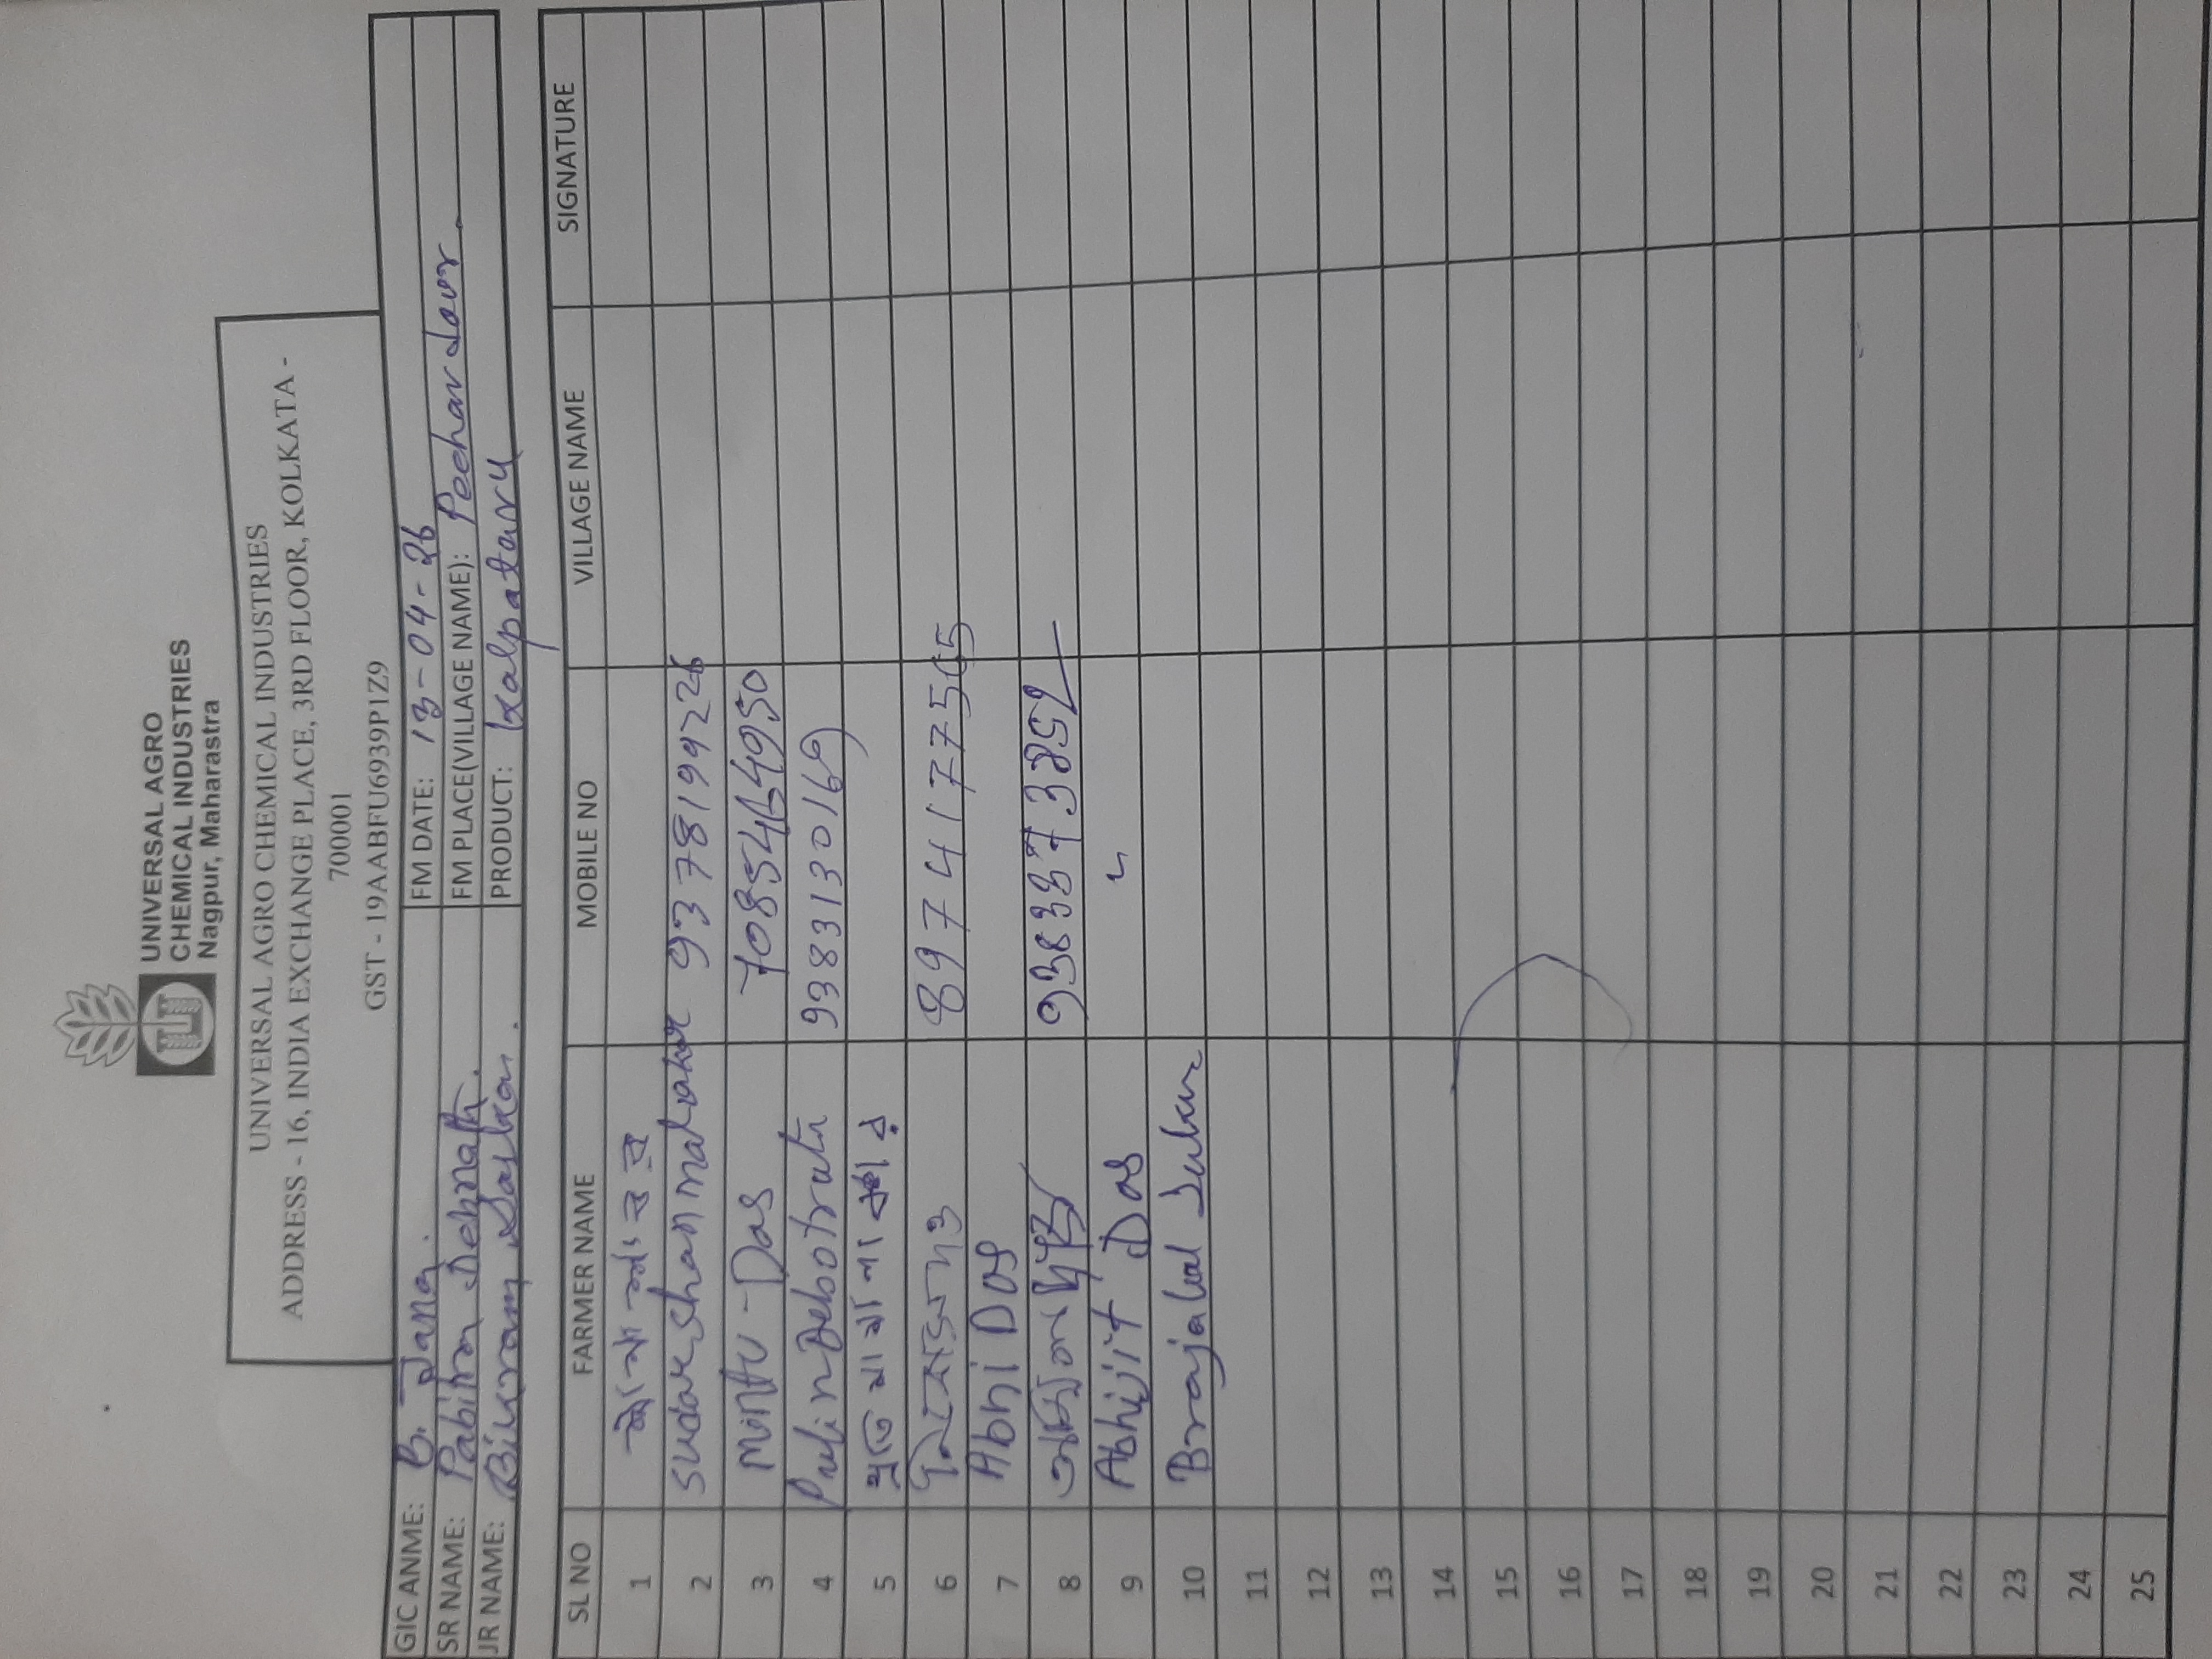 UNIVERSAL AGRO
CHEMICAL INDUSTRIES
Nagpur, Maharastra
UNIVERSAL AGRO CHEMICAL INDUSTRIES
ADDRESS - 16, INDIA EXCHANGE PLACE, 3RD FLOOR, KOLKATA -
700001
GST - 19AABFU6939P1Z9
GIC ANME: B. Jana. FM DATE: 13-04-26
SR NAME: Pabitra Debnath. FM PLACE(VILLAGE NAME):
JR NAME: Bikram Sarkar. PRODUCT: Kalpataru
SL NO FARMER NAME MOBILE NO VILLAGE NAME SIGNATURE
1
2 Sudarshan 9378199226
3 Mintu - Das
4 Pulin Debnath 9383130169
5
6 8974177565
7 Abhi Das
8 9383373852
9 Abhijit Das "
10 Brajalal
11
12
13
14
15
16
17
18
19
20
21
22
23
24
25